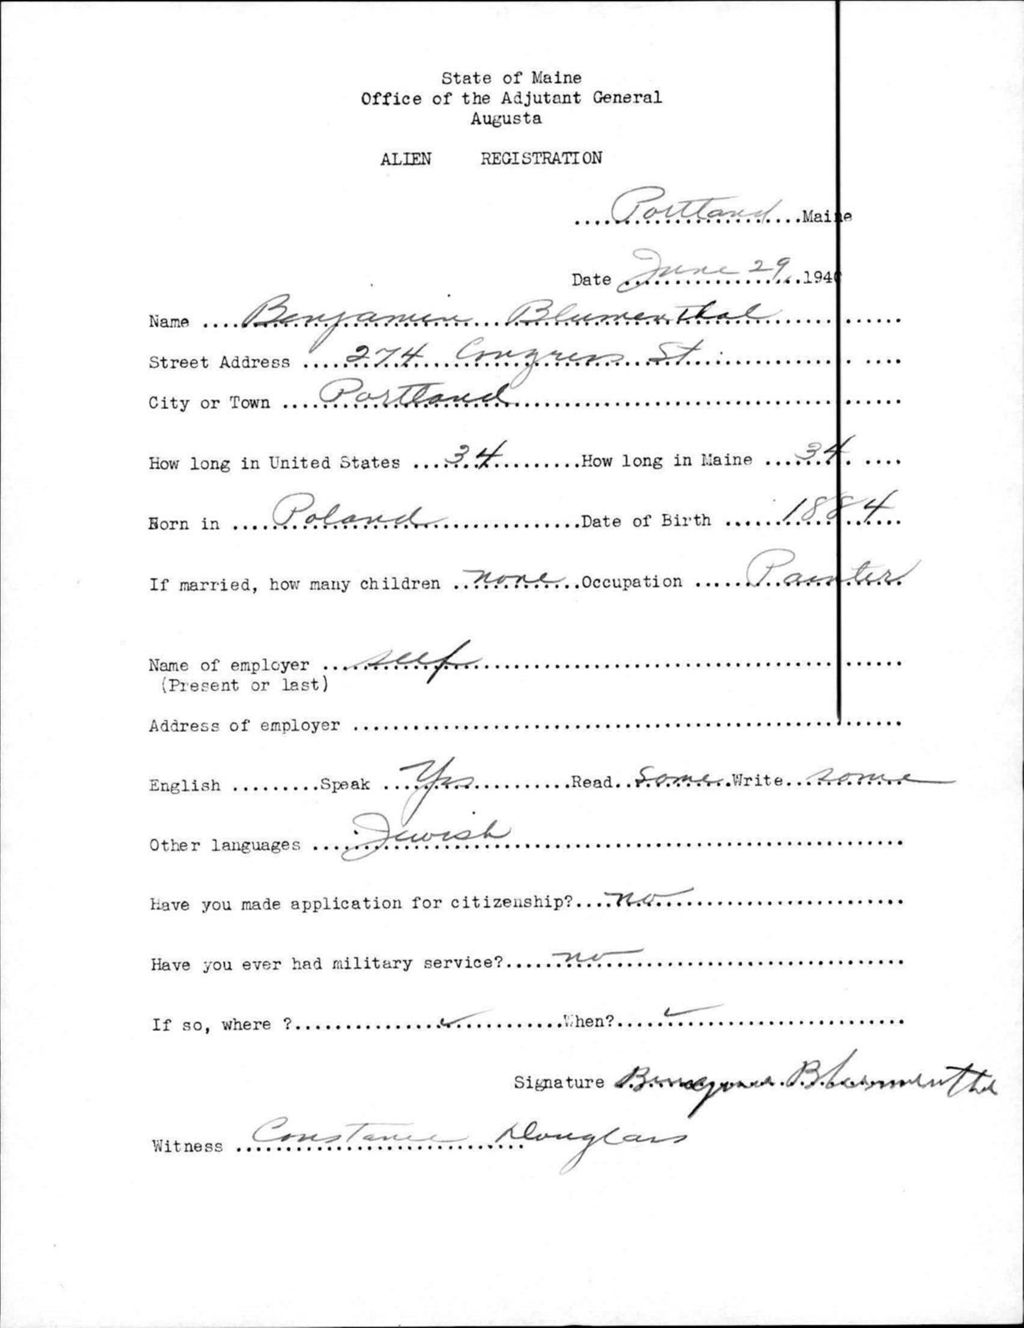 State of Maine
Office of the Adjutant General
Augusta
ALIEN REGISTRATION
....Portland....Maine
Date June 29, 1940
Name ....Benjamin Blumenthal....
Street Address ....274 Congress St....
City or Town ....Portland....
How long in United States ....34....How long in Maine ....34....
Born in ....Poland....Date of Birth ....1884....
If married, how many children ..none...Occupation .....Painter
Name of employer ....self....
(Present or last)
Address of employer ....
English .........Speak ...Yes...........Read..Some..Write...some
Other languages ....Jewish....
Have you made application for citizenship?....no....
Have you ever had military service?.....no....
If so, where ?....✓....When?....✓....
Signature Benjamin Blumenthal
Witness ....Constance Douglass